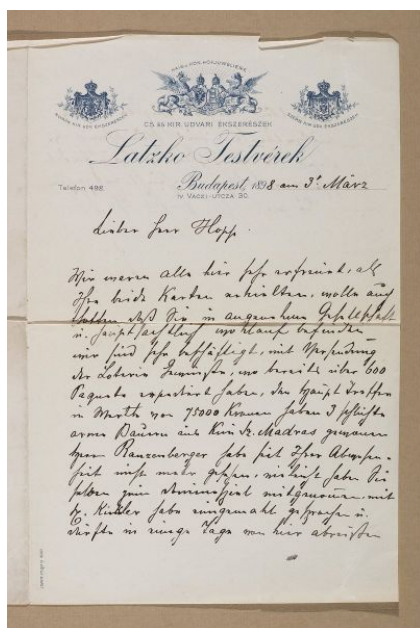 KAIS. u. KÖN. HOFJUWELIERE
CS. ÉS KIR. UDVARI ÉKSZERÉSZEK
Latzko Testvérek
Telefon 498.
Budapest, 1898 am 3t März
IV. VÁCZI-UTCZA 30.
Lieber Herr Hopp.
Wir waren alle hier sehr erfreut, als
Ihre beide Karten erhielten, wollen auch
hoffen daß Sie in angenehmer Gesellschaft
u. hauptsächlich wohlauf befinden
wir sind sehr beschäftigt, mit Versendung
der Loterie Gewinste, wo bereits über 600
Paquete expediert haben, den Haupt Treffer
in Werth von 75000 Kronen haben 3 schlichte
arme Bauern aus Madras gewonnen
Herrn Ranzenberger habe seit Ihrer Abwesen-
heit nicht mehr gesehen, vieleicht haben Sie
selben zum mitgenommen, mit
habe einigemahl gesprochen u.
dürfte in einige Tage von hier abreißen